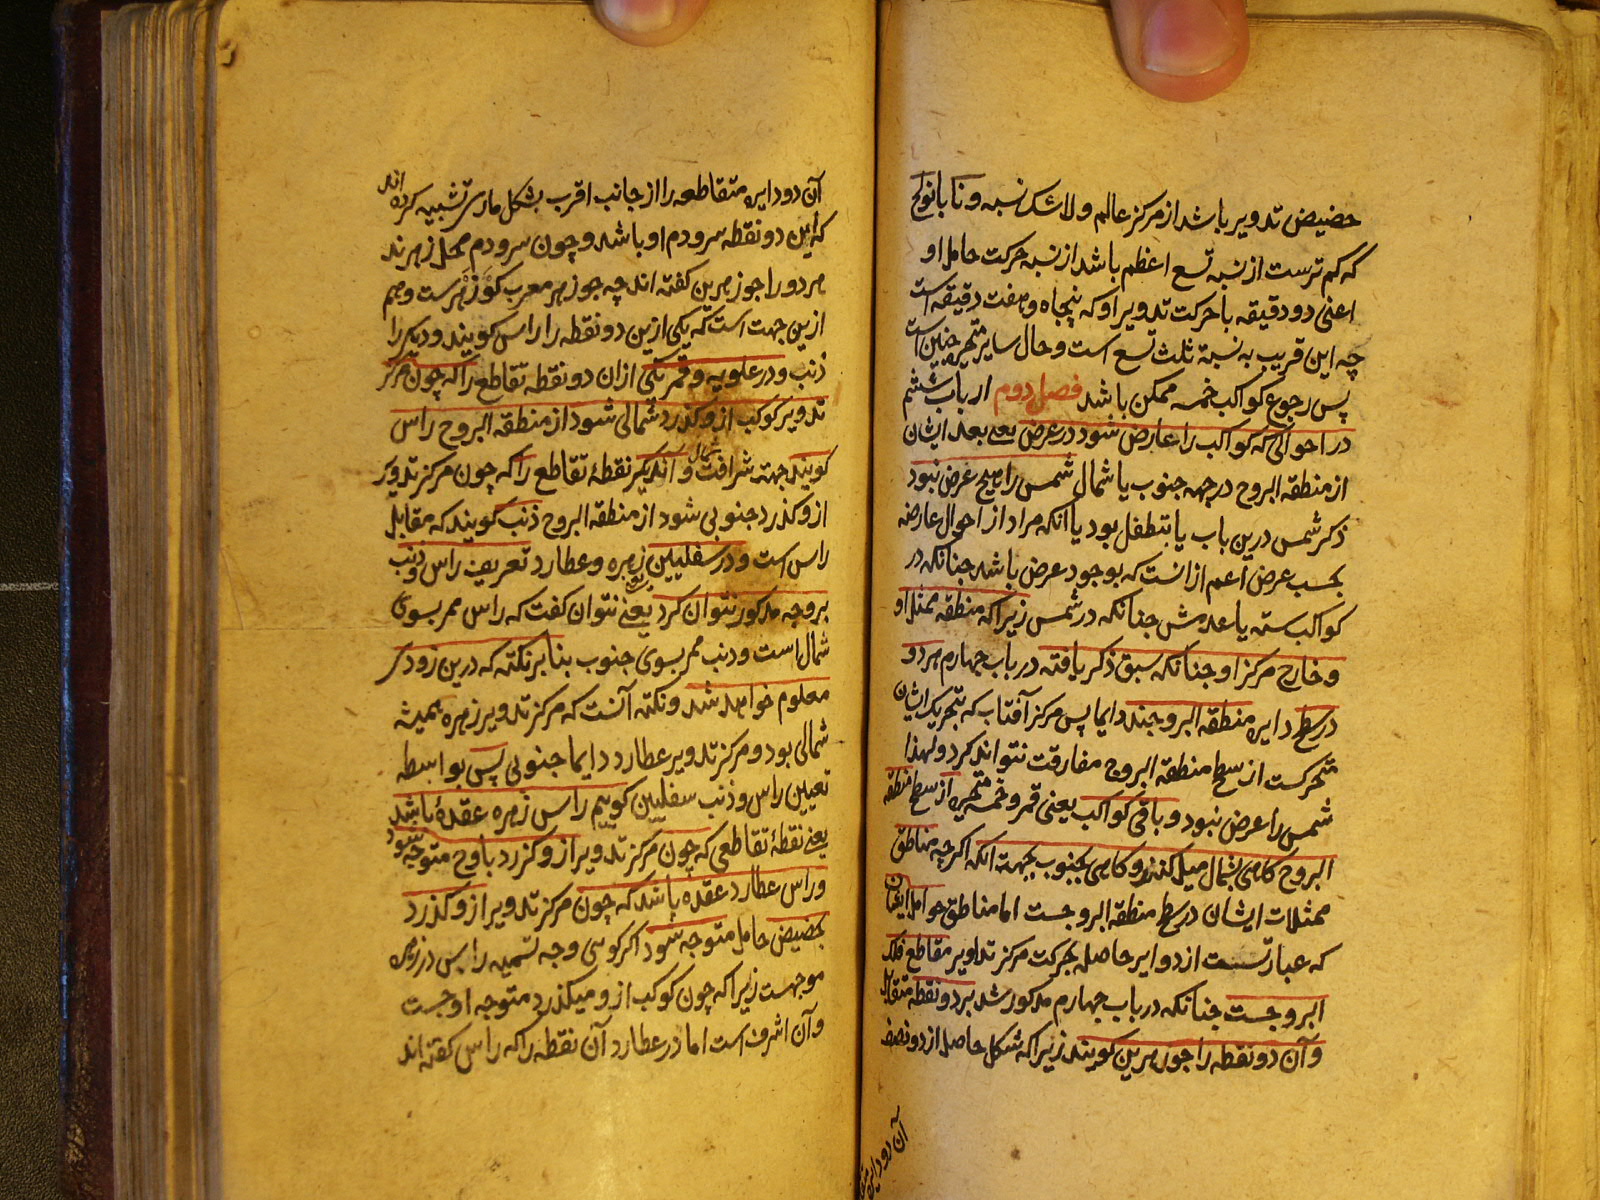 حضیض تدویر باشد از مرکز عالم و لاشک نسبه
که کم ترست از نسبه تسع اعظم باشد از نسبه حرکت حامل او
اعنی دو دقیقه با حرکت تدویر او که پنجاه و هفت دقیقه است
چه این قریب به نسبة ثلث تسع است و حال سایر متحیره چنین است
پس رجوع کواکب خمسه ممکن باشد فصل دوم از باب ششم
در احوالی که کواکب را عارض شود در عرض یعنی بعد ایشان
از منطقه البروج در جهه جنوب یا شمال شمس را هیچ عرض نبود
ذکر شمس درین باب یا بتطفل بود یا آنکه مراد از احوال عارضه
بحسب عرض اعم ازانست که بوجود عرض باشد چنانکه در
کواکب سته یا عدمش چنانکه در شمس زیراکه منطقه ممثل او
و خارج مرکز او چنانکه سبق ذکر یافته در باب چهارم هر دو
در سطح دایره منطقه البروجند دایما پس مرکز آفتاب که بتحریک ایشان
متحرکست از سطح منطقه البروج مفارقت نتواند کرد و لهذا
شمس را عرض نبود و باقی کواکب یعنی قمر و خمسه متحیره از سطح منطقه
البروج کاهی بشمال میل کنند و کاهی بجنوب بجهت آنکه اگرچه مناطق
ممثلات ایشان در سطح منطقه البروجست اما مناطق حوامل ایشان
که عبارتست از دوایر حاصله بحرکت مرکز تداویر مقاطع فلک
البروجست چنانکه در باب چهارم مذکور شد بر دو نقطه متقابل
و آن دو نقطه را جوزهرین کویند زیراکه شکل حاصل از دو نصف
آن دو دایره
آن دو دایره متقاطعه را از جانب اقرب بشکل ماری تشبیه کرده اند
که این دو نقطه سر و دم او باشد و چون سر و دم محل زهرند
هر دو را جوزهرین کفته اند چه جوزهر معرب کوزهرست و هم
ازین جهت است که یکی ازین دو نقطه را راس کویند و دیکر را
ذنب و در علویه و قمر یکی ازان دو نقطه تقاطع را که چون مرکز
تدویر کوکب ازو کذرد شمالی شود از منطقه البروج راس
کویند جهت شرافت شمال و آن دیکر نقطهٔ تقاطع را که چون مرکز تدویر
ازو کذرد جنوبی شود از منطقه البروج ذنب کویند که مقابل
راس است و در سفلیین زهره و عطارد تعریف راس و ذنب
بروجه مذکور نتوان کرد یعنی نتوان کفت که راس ممر بسوی
شمال است و ذنب ممر بسوی جنوب بنابر نکته که درین زودی
معلوم خواهد شد و نکته آنست که مرکز تدویر زهره همیشه
شمالی بود و مرکز تدویر عطارد دایما جنوبی پس بواسطه
تعیین راس و ذنب سفلیین کوییم راس زهره عقدهٔ باشد
یعنی نقطهٔ تقاطعی که چون مرکز تدویر ازو کذرد باوج متوجه شود
و راس عطارد عقده باشد که چون مرکز تدویر ازو کذرد
بحضیض حامل متوجه شود اکر کویی وجه تسمیه راس در زهره
موجهست زیراکه چون کوکب ازو میکذرد متوجه اوجست
و آن اشرف است اما در عطارد آن نقطه را که راس کفته اند